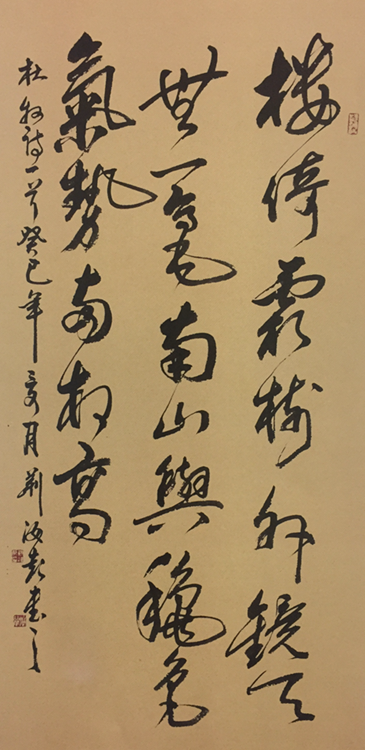 楼倚霜樹外鏡天
無一毫南山與龝色
氣勢兩相高
杜牧詩一首癸巳年亥月荆汝彭書之